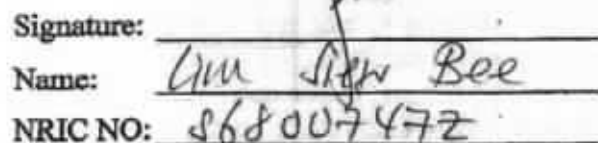 Signature:
Name: Lim Siew Bee
NRIC NO: S6800747Z